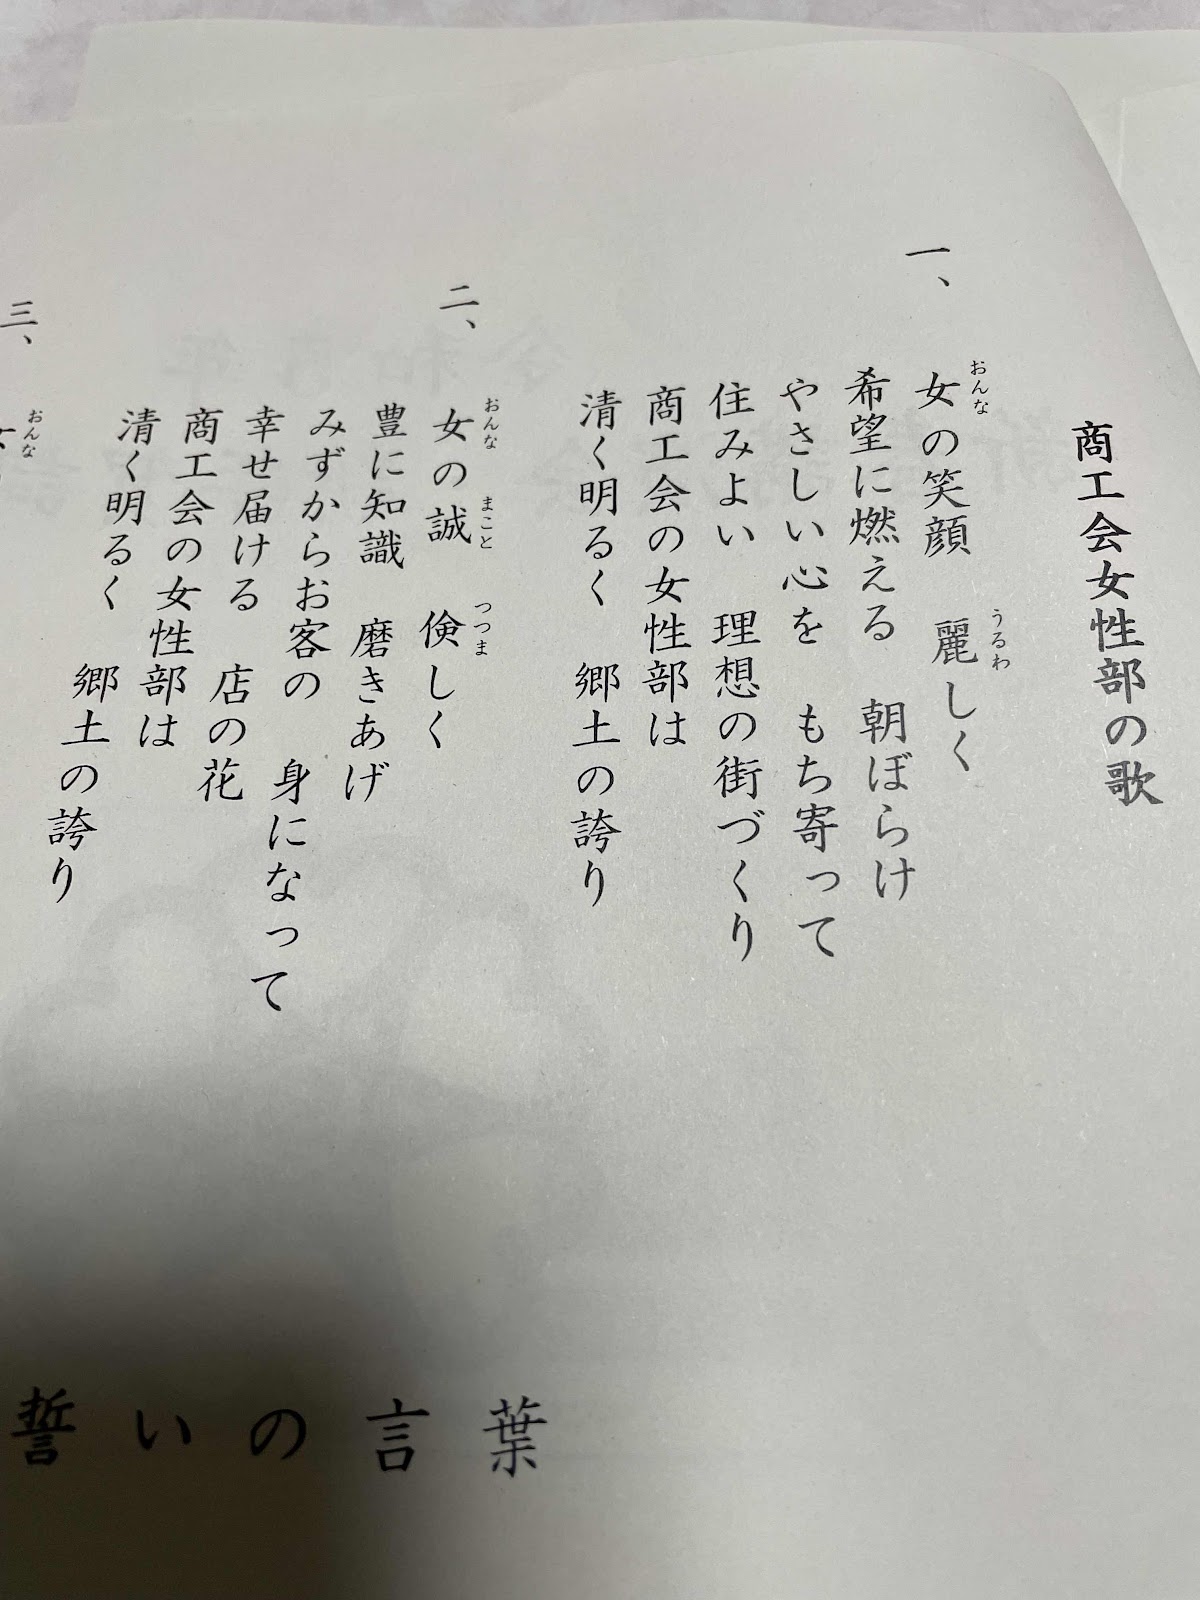 商工会女性部の歌
一、
女の笑顔　麗しく
おんな
うるわ
希望に燃える　朝ぼらけ
やさしい心を　もち寄って
住みよい　理想の街づくり
商工会の女性部は
清く明るく　郷土の誇り
二、
女の誠　倹しく
おんな
まこと
つつま
豊に知識　磨きあげ
みずからお客の　身になって
幸せ届ける　店の花
商工会の女性部は
清く明るく　郷土の誇り
三、
おんな
誓いの言葉